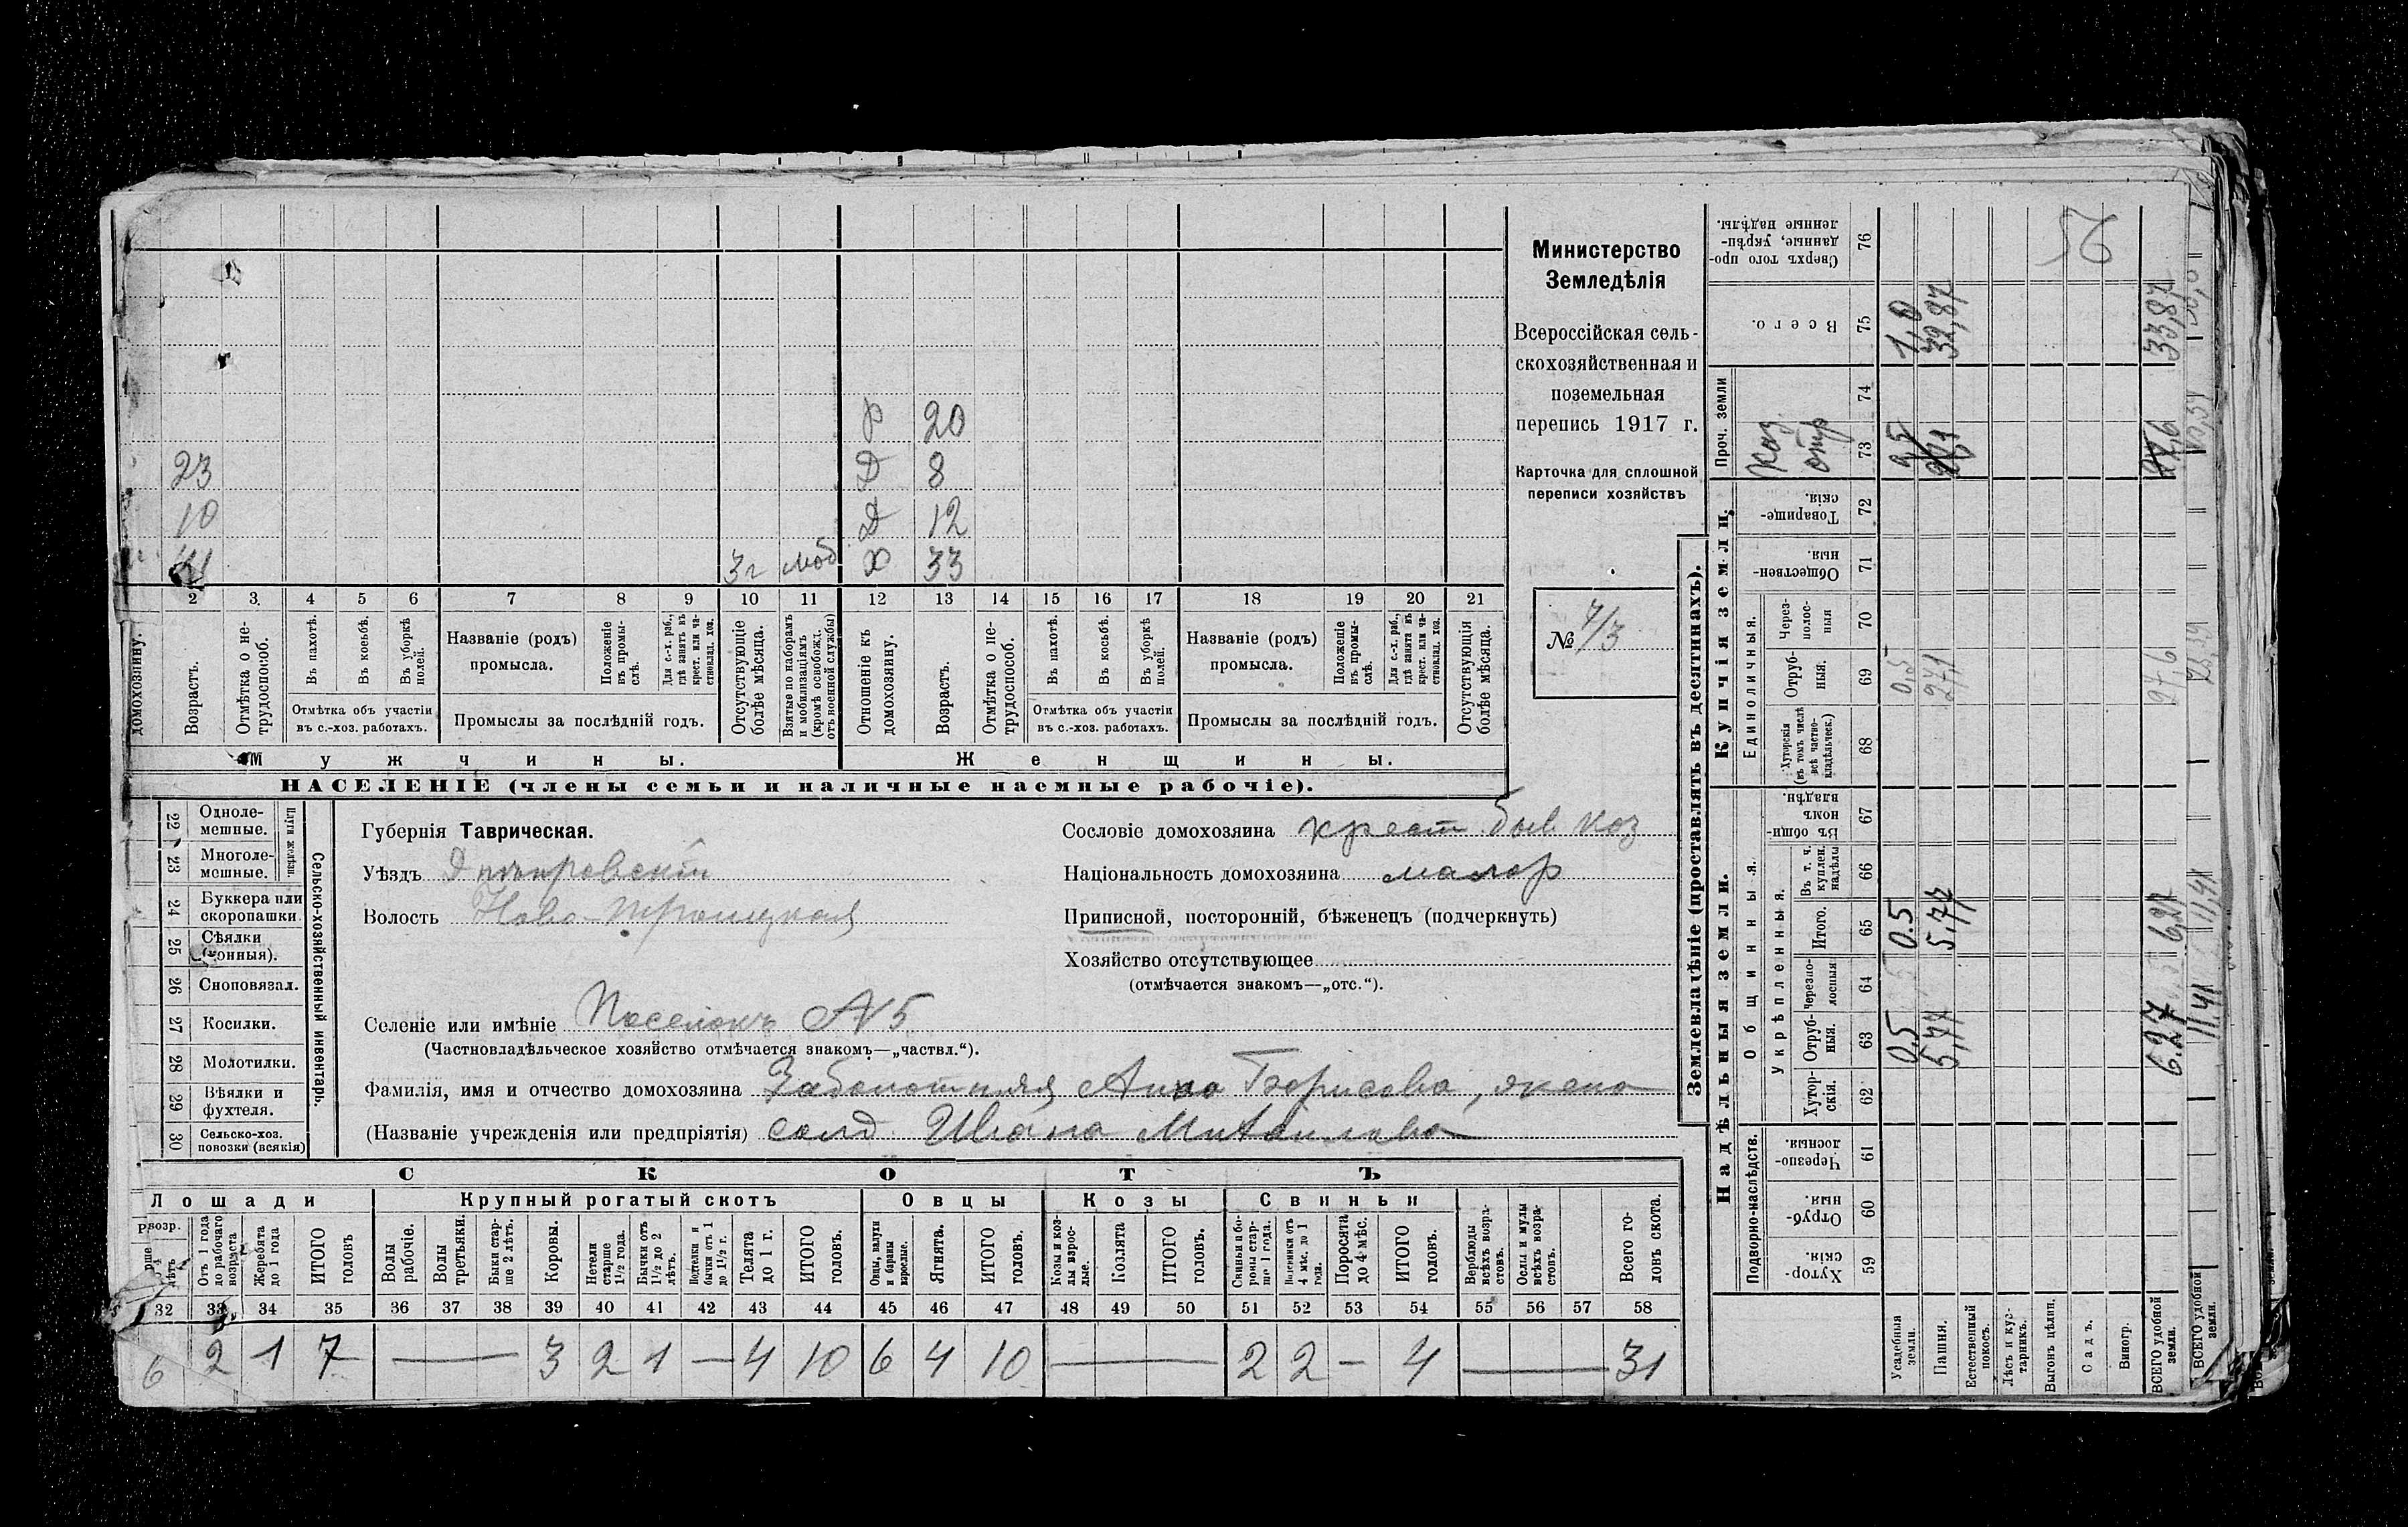 Р 20
23 Д 8
10 Д 12
41 3 г моб Х 33
2 3 4 5 6 7 8 9 10 11 12 13 14 15 16 17 18 19 20 21
домохозяину.
Возрастъ.
Отмѣтка о не-
трудоспособ.
Въ пахотѣ.
Въ косьбѣ.
Въ уборкѣ
полей.
Отмѣтка объ участіи
въ с.-хоз. работахъ.
Названіе (родъ)
промысла.
Положеніе
въ промы-
слѣ.
Для с.-х. раб.,
гдѣ занятъ въ
крест. или ча-
стновлад. хоз.
Промыслы за послѣдній годъ.
Отсутствующіе
болѣе мѣсяца.
Взятые по наборамъ
и мобилизаціямъ
(кромѣ освобожд.
отъ военной службы)
Отношеніе къ
домохозяину.
Возрастъ.
Отмѣтка о не-
трудоспособ.
Въ пахотѣ.
Въ косьбѣ.
Въ уборкѣ
полей.
Отмѣтка объ участіи
въ с.-хоз. работахъ.
Названіе (родъ)
промысла.
Положеніе
въ промы-
слѣ.
Для с.-х. раб.,
гдѣ занята въ
крест. или ча-
стновлад. хоз.
Промыслы за послѣдній годъ.
Отсутствующія
болѣе мѣсяца.
Мужчины.
Женщины.
НАСЕЛЕНІЕ (члены семьи и наличные наемные рабочіе).
Министерство
Земледѣлія
Всероссійская сель-
скохозяйственная и
поземельная
перепись 1917 г.
Карточка для сплошной
переписи хозяйствъ
№ 4/3
22 Одноле-
мешные.
23 Многоле-
мешные.
Плуги желѣзн.
24 Буккера или
скоропашки.
25 Сѣялки
(конныя).
26 Сноповязал.
27 Косилки.
28 Молотилки.
29 Вѣялки и
фухтеля.
30 Сельско-хоз.
повозки (всякія)
Сельско-хозяйственный инвентарь.
Губернія Таврическая.
Уѣздъ Днѣпровскій
Волость Ново-Троицкая
Селеніе или имѣніе Поселокъ №5
(Частновладѣльческое хозяйство отмѣчается знакомъ—„частвл.“).
Фамилія, имя и отчество домохозяина Заболотняя Анна Борисова, жена
(Названіе учрежденія или предпріятія) солд. Ивана Михаилова
Сословіе домохозяина крест. быв коз
Національность домохозяина малор
Приписной, посторонній, бѣженецъ (подчеркнуть)
Хозяйство отсутствующее
(отмѣчается знакомъ—„отс.“).
СКОТЪ
Лошади Крупный рогатый скотъ Овцы Козы Свиньи
Отъ 1 года
до рабочаго
возраста
Жеребята
до 1 года
ИТОГО
головъ
Волы
рабочіе.
Волы
третьяки.
Быки стар-
ше 2 лѣтъ.
Коровы.
Нетели
старше
1½ года.
Бычки отъ
1½ до 2
лѣтъ.
Подтелки и
бычки отъ 1
до 1½ г.
Телята
до 1 г.
ИТОГО
головъ.
Овцы, валухи
и бараны
взрослые.
Ягнята.
ИТОГО
головъ.
Козы и коз-
лы взрос-
лые.
Козлята
ИТОГО
головъ.
Свиньи и бо-
ровы стар-
ше 1 года.
Подсвинки отъ
4 мѣс. до 1
года.
Поросята
до 4 мѣс.
ИТОГО
головъ.
Верблюды
всѣхъ возра-
стовъ.
Ослы и мулы
всѣхъ возра-
стовъ.
Всего го-
ловъ скота.
32 33 34 35 36 37 38 39 40 41 42 43 44 45 46 47 48 49 50 51 52 53 54 55 56 57 58
6 2 1 7 — 3 2 1 — 4 10 6 4 10 — 2 2 — 4 — 31
Землевладѣніе (проставлять въ десятинахъ).
Надѣльныя земли.
Купчія земли.
Подворно-наслѣдств.
Хутор-
скія. 59
Отруб-
ныя. 60
Черезпо-
лосныя. 61
Общинныя.
Укрѣпленныя.
Хутор-
скія. 62
Отруб-
ныя. 63
Черезпо-
лосныя 64
Итого. 65
Въ т. ч.
куплен.
надѣлы 66
Въ общи-
номъ
владѣн. 67
Единоличныя.
Хуторскія
(въ томъ числѣ
всѣ частно-
владѣльческ.) 68
Отруб-
ныя. 69
Через-
полос-
ныя 70
Обществен-
ныя. 71
Товарище-
скія. 72
Проч. земли
Каз
отр
73 74
Всего. 75
Сверхъ того про-
данные, укрѣп-
ленные надѣлы. 76
Усадебныя
земли.
0.5 0.5 0,5 1,0
Пашня.
5,77 5,77 27,1 32,87
Естественный
покосъ.
Лѣсъ и кус-
тарникъ.
Выгонъ цѣлин.
Садъ.
Виногр.
ВСЕГО удобной
земли.
6.27 6,27 27,6 27,6 33,87
56
ВСЕГО удобной
земли.
11,41 11,41